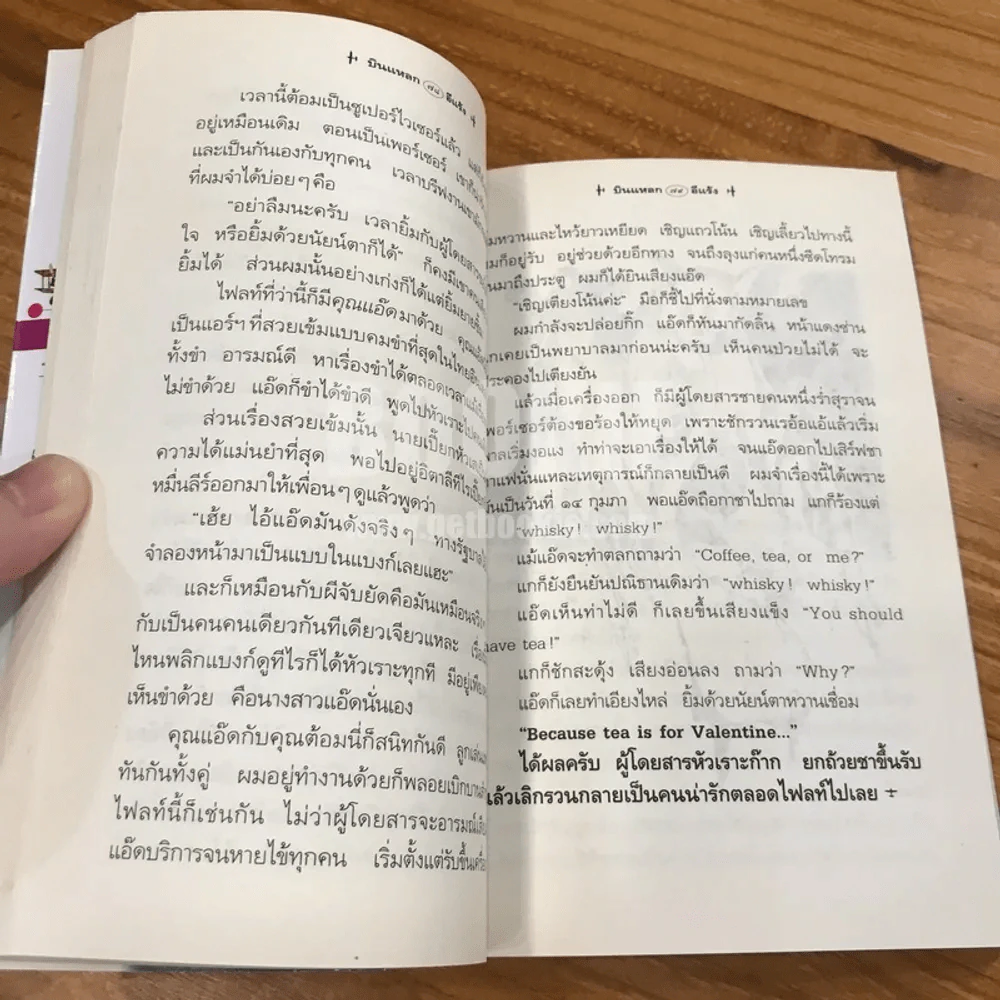 บินแหลก ๗๘ อีแร้ง
เวลานี้ต้อมเป็นซูเปอร์ไวเซอร์แล้ว
อยู่เหมือนเดิม ตอนเป็นเพอร์เซอร์
และเป็นกันเองกับทุกคน เวลาบรีฟงานเขามัก
ที่ผมจำได้บ่อยๆ คือ
"อย่าลืมนะครับ เวลายิ้มกับผู้โดยสาร
ใจ หรือยิ้มด้วยนัยน์ตาก็ได้" ก็คงมีเขา
ยิ้มได้ ส่วนผมนั้นอย่างเก่งก็ได้แต่ยิ้มยาย
ไฟลท์ที่ว่านี้ก็มีคุณแอ๊ดมาด้วย
เป็นแอร์ฯ ที่สวยเข้มแบบคมขำที่สุดในไทย
ทั้งขำ อารมณ์ดี หาเรื่องขำได้ตลอดเวลา
ไม่ขำด้วย แอ๊ดก็ขำได้ขำดี พูดไปหัวเราะไป
ส่วนเรื่องสวยเข้มนั้น นายเปี๊ยก
ความได้แม่นยำที่สุด พอไปอยู่อิตาลีทีไร
หมื่นลีร์ออกมาให้เพื่อนๆ ดูแล้วพูดว่า
"เฮ้ย ไอ้แอ๊ดมันดังจริงๆ ทางรัฐบาล
จำลองหน้ามาเป็นแบบในแบงก์เลยแฮะ"
และก็เหมือนกับผีจับยัดคือมันเหมือน
กับเป็นคนคนเดียวกันทีเดียวเจียวแหละ
ไหนพลิกแบงก์ดูทีไรก็ได้หัวเราะทุกที มีอยู่
เห็นขำด้วย คือนางสาวแอ๊ดนั่นเอง
คุณแอ๊ดกับคุณต้อมนี่ก็สนิทกันดี
ทันกันทั้งคู่ ผมอยู่ทำงานด้วยก็พลอยเบิกบาน
ไฟลท์นี้ก็เช่นกัน ไม่ว่าผู้โดยสารจะอารมณ์
แอ๊ดบริการจนหายไข้ทุกคน เริ่มตั้งแต่รับขึ้น
บินแหลก ๗๙ อีแร้ง
มหวานและไหว้ยาวเหยียด เชิญแถวโน้น เชิญเลี้ยวไปทางนี้
มก็อยู่รับ อยู่ช่วยด้วยอีกทาง จนถึงลุงแก่คนหนึ่งซีดโทรม
นมาถึงประตู ผมก็ได้ยินเสียงแอ๊ด
"เชิญเตียงโน้นค่ะ" มือก็ชี้ไปที่นั่งตามหมายเลข
ผมกำลังจะปล่อยกิ๊ก แอ๊ดก็หันมากัดลิ้น หน้าแดงซ่าน
กเคยเป็นพยาบาลมาก่อนน่ะครับ เห็นคนป่วยไม่ได้ จะ
ประคองไปเตียงยัน
แล้วเมื่อเครื่องออก ก็มีผู้โดยสารชายคนหนึ่งร่ำสุราจน
พอร์เซอร์ต้องขอร้องให้หยุด เพราะชักรวนเรอ้อแอ้แล้วเริ่ม
าลเริ่มงอแง ทำท่าจะเอาเรื่องให้ได้ จนแอ๊ดออกไปเสิร์ฟชา
าแฟนั่นแหละเหตุการณ์ก็กลายเป็นดี ผมจำเรื่องนี้ได้เพราะ
นเป็นวันที่ ๑๔ กุมภา พอแอ๊ดถือกาชาไปถาม แกก็ร้องแต่
"whisky! whisky!"
แม้แอ๊ดจะทำตลกถามว่า "Coffee, tea, or me?"
แกก็ยังยืนยันปณิธานเดิมว่า "whisky! whisky!"
แอ๊ดเห็นท่าไม่ดี ก็เลยขึ้นเสียงแข็ง "You should
have tea!"
แกก็ชักสะดุ้ง เสียงอ่อนลง ถามว่า "Why?"
แอ๊ดก็เลยทำเอียงไหล่ ยิ้มด้วยนัยน์ตาหวานเชื่อม
"Because tea is for Valentine..."
ได้ผลครับ ผู้โดยสารหัวเราะก๊าก ยกถ้วยชาขึ้นรับ
แล้วเลิกรวนกลายเป็นคนน่ารักตลอดไฟลท์ไปเลย